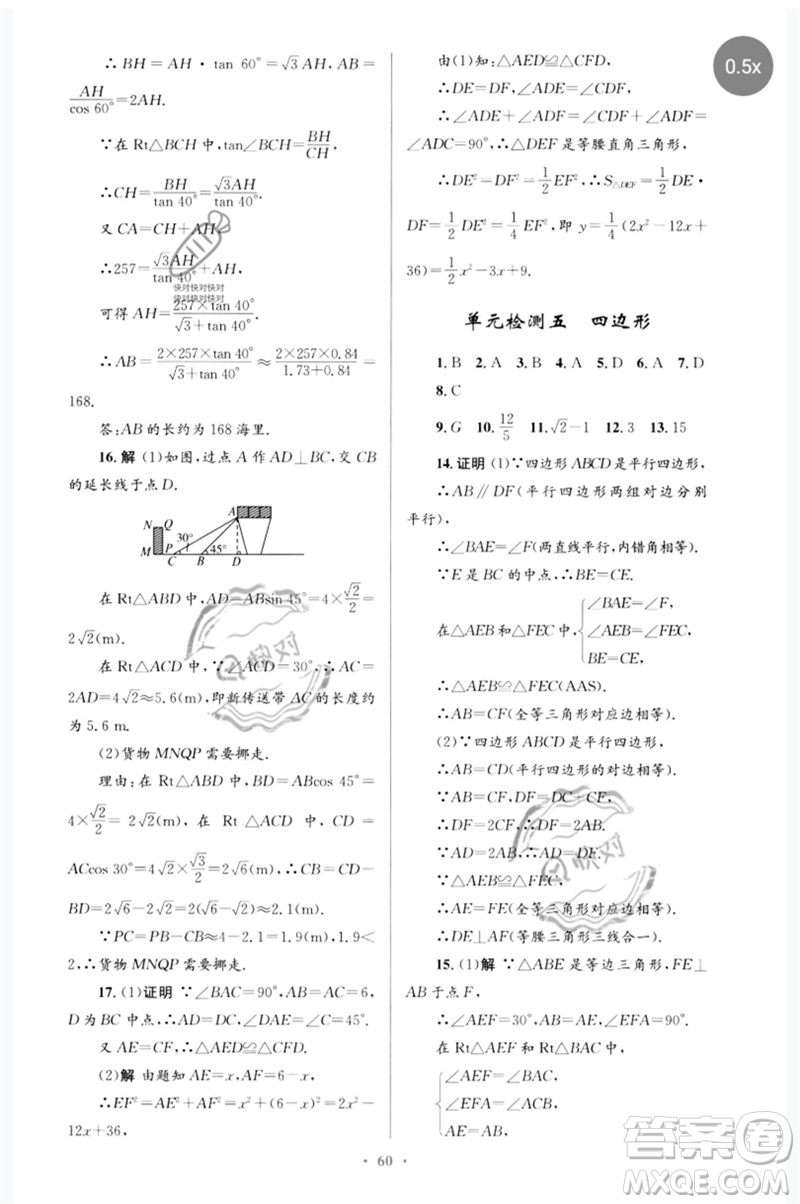 ∴BH=AH·tan 60°=√3AH,AB=
AH/cos 60°=2AH.
∵在 Rt△BCH 中,tan∠BCH=BH/CH,
∴CH=BH/tan 40°=√3AH/tan 40°.
又 CA=CH+AH,
∴257=√3AH/tan 40°+AH.
快对快对快对
快对快对快对
可得 AH=257×tan 40°/√3+tan 40°.
∴AB=2×257×tan 40°/√3+tan 40°≈2×257×0.84/1.73+0.84≈
168.
答:AB 的长约为 168 海里.
16.解 (1)如图,过点 A 作 AD⊥BC,交 CB
的延长线于点 D.
N Q A
30°
45°
M P C B D
在 Rt△ABD 中,AD=ABsin 45°=4×√2/2=
2√2(m).
在 Rt△ACD 中,∵∠ACD=30°,∴AC=
2AD=4√2≈5.6(m),即新传送带 AC 的长度约
为 5.6 m.
(2)货物 MNQP 需要挪走.
理由:在 Rt△ABD 中,BD=ABcos 45°=
4×√2/2=2√2(m),在 Rt△ACD 中,CD=
ACcos 30°=4√2×√3/2=2√6(m),∴CB=CD-
BD=2√6-2√2=2(√6-√2)≈2.1(m).
∵PC=PB-CB≈4-2.1=1.9(m),1.9<
2,∴货物 MNQP 需要挪走.
17.(1)证明 ∵∠BAC=90°,AB=AC=6,
D 为 BC 中点,∴∠BAD=∠DAC=∠C=45°.
又 AE=CF,∴△AED≌△CFD.
(2)解 由题知 AE=x,AF=6-x,
∴EF²=AE²+AF²=x²+(6-x)²=2x²-
12x+36,
由(1)知:△AED≌△CFD,
∴DE=DF,∠ADE=∠CDF,
∴∠ADE+∠ADF=∠CDF+∠ADF=
∠ADC=90°,∴△DEF 是等腰直角三角形,
∴DE²=DF²=1/2EF²,∴S△DEF=1/2DE·
DF=1/2DE²=1/4EF²,即 y=1/4(2x²-12x+
36)=1/2x²-3x+9.
单元检测五 四边形
1.B 2.A 3.B 4.A 5.D 6.A 7.D
8.C
9.G 10.12/5 11.√2-1 12.3 13.15
14.证明 (1)∵四边形 ABCD 是平行四边形,
∴AB∥DF(平行四边形两组对边分别
平行),
∴∠BAE=∠F(两直线平行,内错角相等).
∵E 是 BC 的中点,∴BE=CE.
在△AEB 和△FEC 中,{∠BAE=∠F,
∠AEB=∠FEC,
BE=CE,
∴△AEB≌△FEC(AAS).
∴AB=CF(全等三角形对应边相等).
(2)∵四边形 ABCD 是平行四边形,
∴AB=CD(平行四边形的对边相等).
∵AB=CF,DF=DC+CF,
∴DF=2CF,∴DF=2AB.
∵AD=2AB,∴AD=DF.
∵△AEB≌△FEC,
∴AE=FE(全等三角形对应边相等).
∴DE⊥AF(等腰三角形三线合一).
15.(1)解 ∵△ABE 是等边三角形,FE⊥
AB 于点 F,
∴∠AEF=30°,AB=AE,∠EFA=90°.
在 Rt△AEF 和 Rt△BAC 中,
{∠AEF=∠BAC,
∠EFA=∠ACB,
AE=AB,
·60·
0.5x
快对
快对
答案卷
MXQE.COM